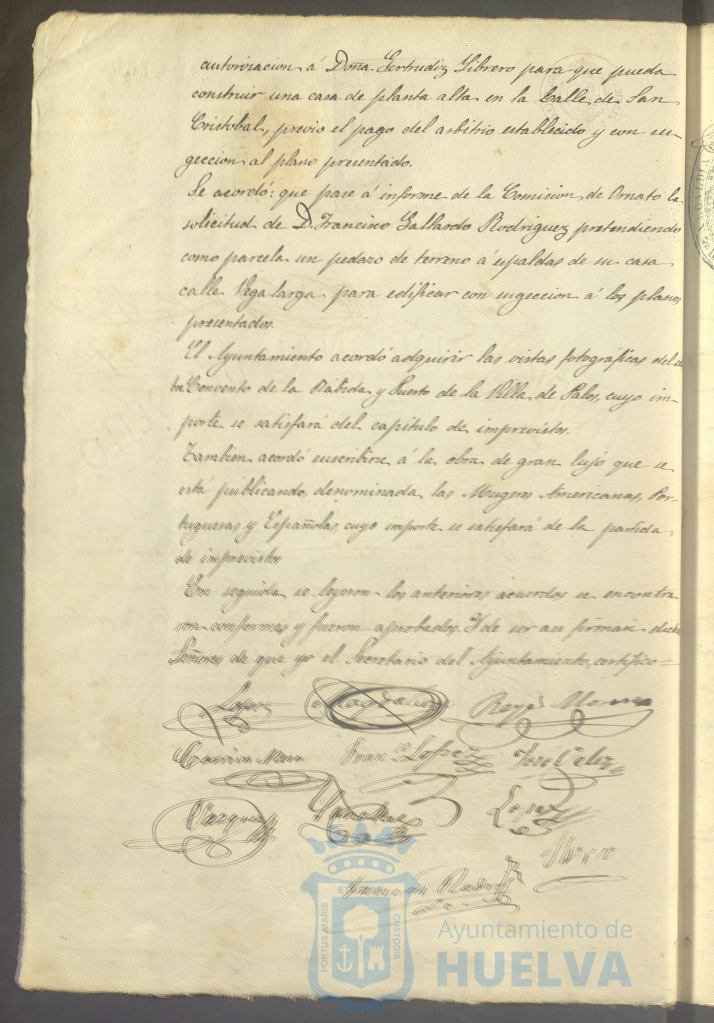 autorizacion á Doña Gertrudiz Librero para que pueda
construir una casa de planta alta en la Calle de San
Cristobal, previo el pago del arbitrio establecido y con su-
geccion al plano presentado.
Se acordó: que pase á informe de la Comision de Ornato la
solicitud de D. Francisco Gallardo Rodriguez pretendiendo
como parcela un pedazo de terreno á espaldas de su casa
calle Vega larga para edificar con sugeccion á los planos
presentados.
El Ayuntamiento acordó adquirir las vistas fotográficas del
Convento de la Rábida y Puerto de la Villa de Palos, cuyo im-
porte se satisfará del capitulo de imprevistos.
Tambien acordó suscribirse á la obra de gran lujo que se
está publicando denominada las Mugeres Americanas, Por-
tuguesas y Españolas, cuyo importe se satisfará de la partida
de imprevistos
En seguida se leyeron los anteriores acuerdos se encontra-
ron conformes y fueron aprobados. Y de ser asi firman dichos
Señores de que yo el Secretario del Ayuntamiento, certifico=
Lopez
Reyes Moreno
Fran.co Lopez José Velez
Vazquez
Lopez
PORTUS MARIS
CUSTODIA
Ayuntamiento de
HUELVA